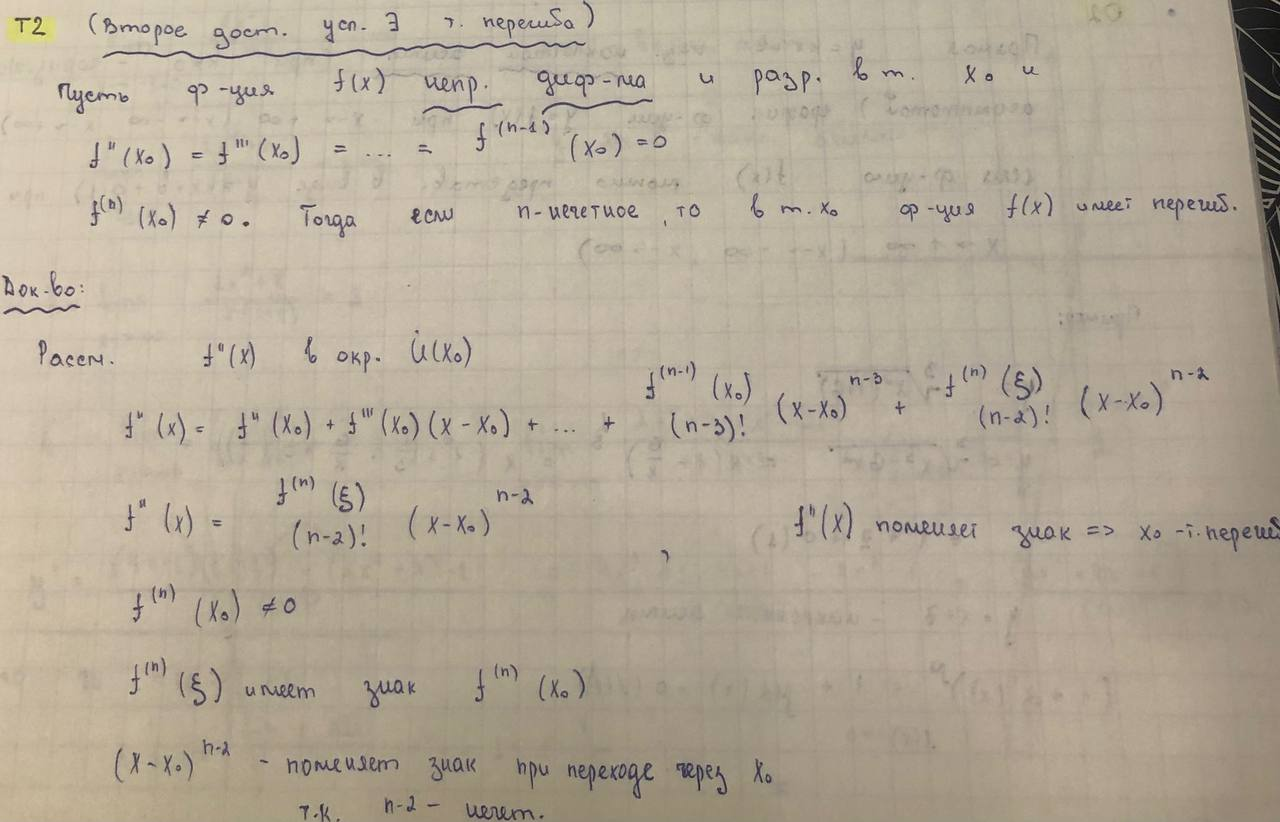 T2 (Второе дост. усл. ∃ т. перегиба)
Пусть ф-ция f(x) непр. диф-ма и разр. в т. x₀ и
f''(x₀) = f'''(x₀) = ... = f⁽ⁿ⁻¹⁾(x₀) = 0
f⁽ⁿ⁾(x₀) ≠ 0. Тогда если n-нечетное, то в т. x₀ ф-ция f(x) имеет перегиб.
Док-во:
Рассм. f''(x) в окр. U̇(x₀)
f''(x) = f''(x₀) + f'''(x₀)(x-x₀) + ... + f⁽ⁿ⁻¹⁾(x₀) (n-3)! (x-x₀)ⁿ⁻³ + f⁽ⁿ⁾(ξ) (n-2)! (x-x₀)ⁿ⁻²
f''(x) = f⁽ⁿ⁾(ξ) (n-2)! (x-x₀)ⁿ⁻² , f''(x) поменяет знак => x₀ -т. перегиб
f⁽ⁿ⁾(x₀) ≠ 0
f⁽ⁿ⁾(ξ) имеет знак f⁽ⁿ⁾(x₀)
(x-x₀)ⁿ⁻² - поменяет знак при переходе через x₀
т.к. n-2 - нечет.